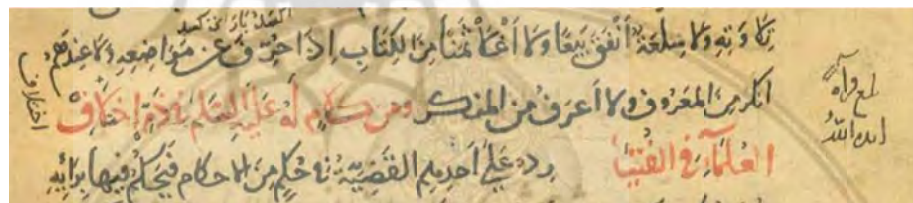 تِلَاوَتِهِ وَلَا سِلْعَةٌ أَنْفَقَ بَيْعًا وَلَا أَغْلَا ثَمَنًا مِنَ الْكِتَابِ إِذَا حُرِّفَ عَنْ مَوَاضِعِهِ وَلَا عِنْدَهُمْ
أَنْكَرُ مِنَ الْمَعْرُوفِ وَلَا أَعْرَفُ مِنَ الْمُنْكَرِ وَمِنْ كَلَامٍ لَهُ عَلَيْهِ السَّلَامُ فِي ذَمِّ اخْتِلَافِ
الْعُلَمَاءِ فِي الْفُتْيَا تَرِدُ عَلَى أَحَدِهِمُ الْقَضِيَّةُ فِي حُكْمٍ مِنَ الْاحْكَامِ فَيَحْكُمُ فِيهَا بِرَأْيِهِ
اختلاف
ايده الله